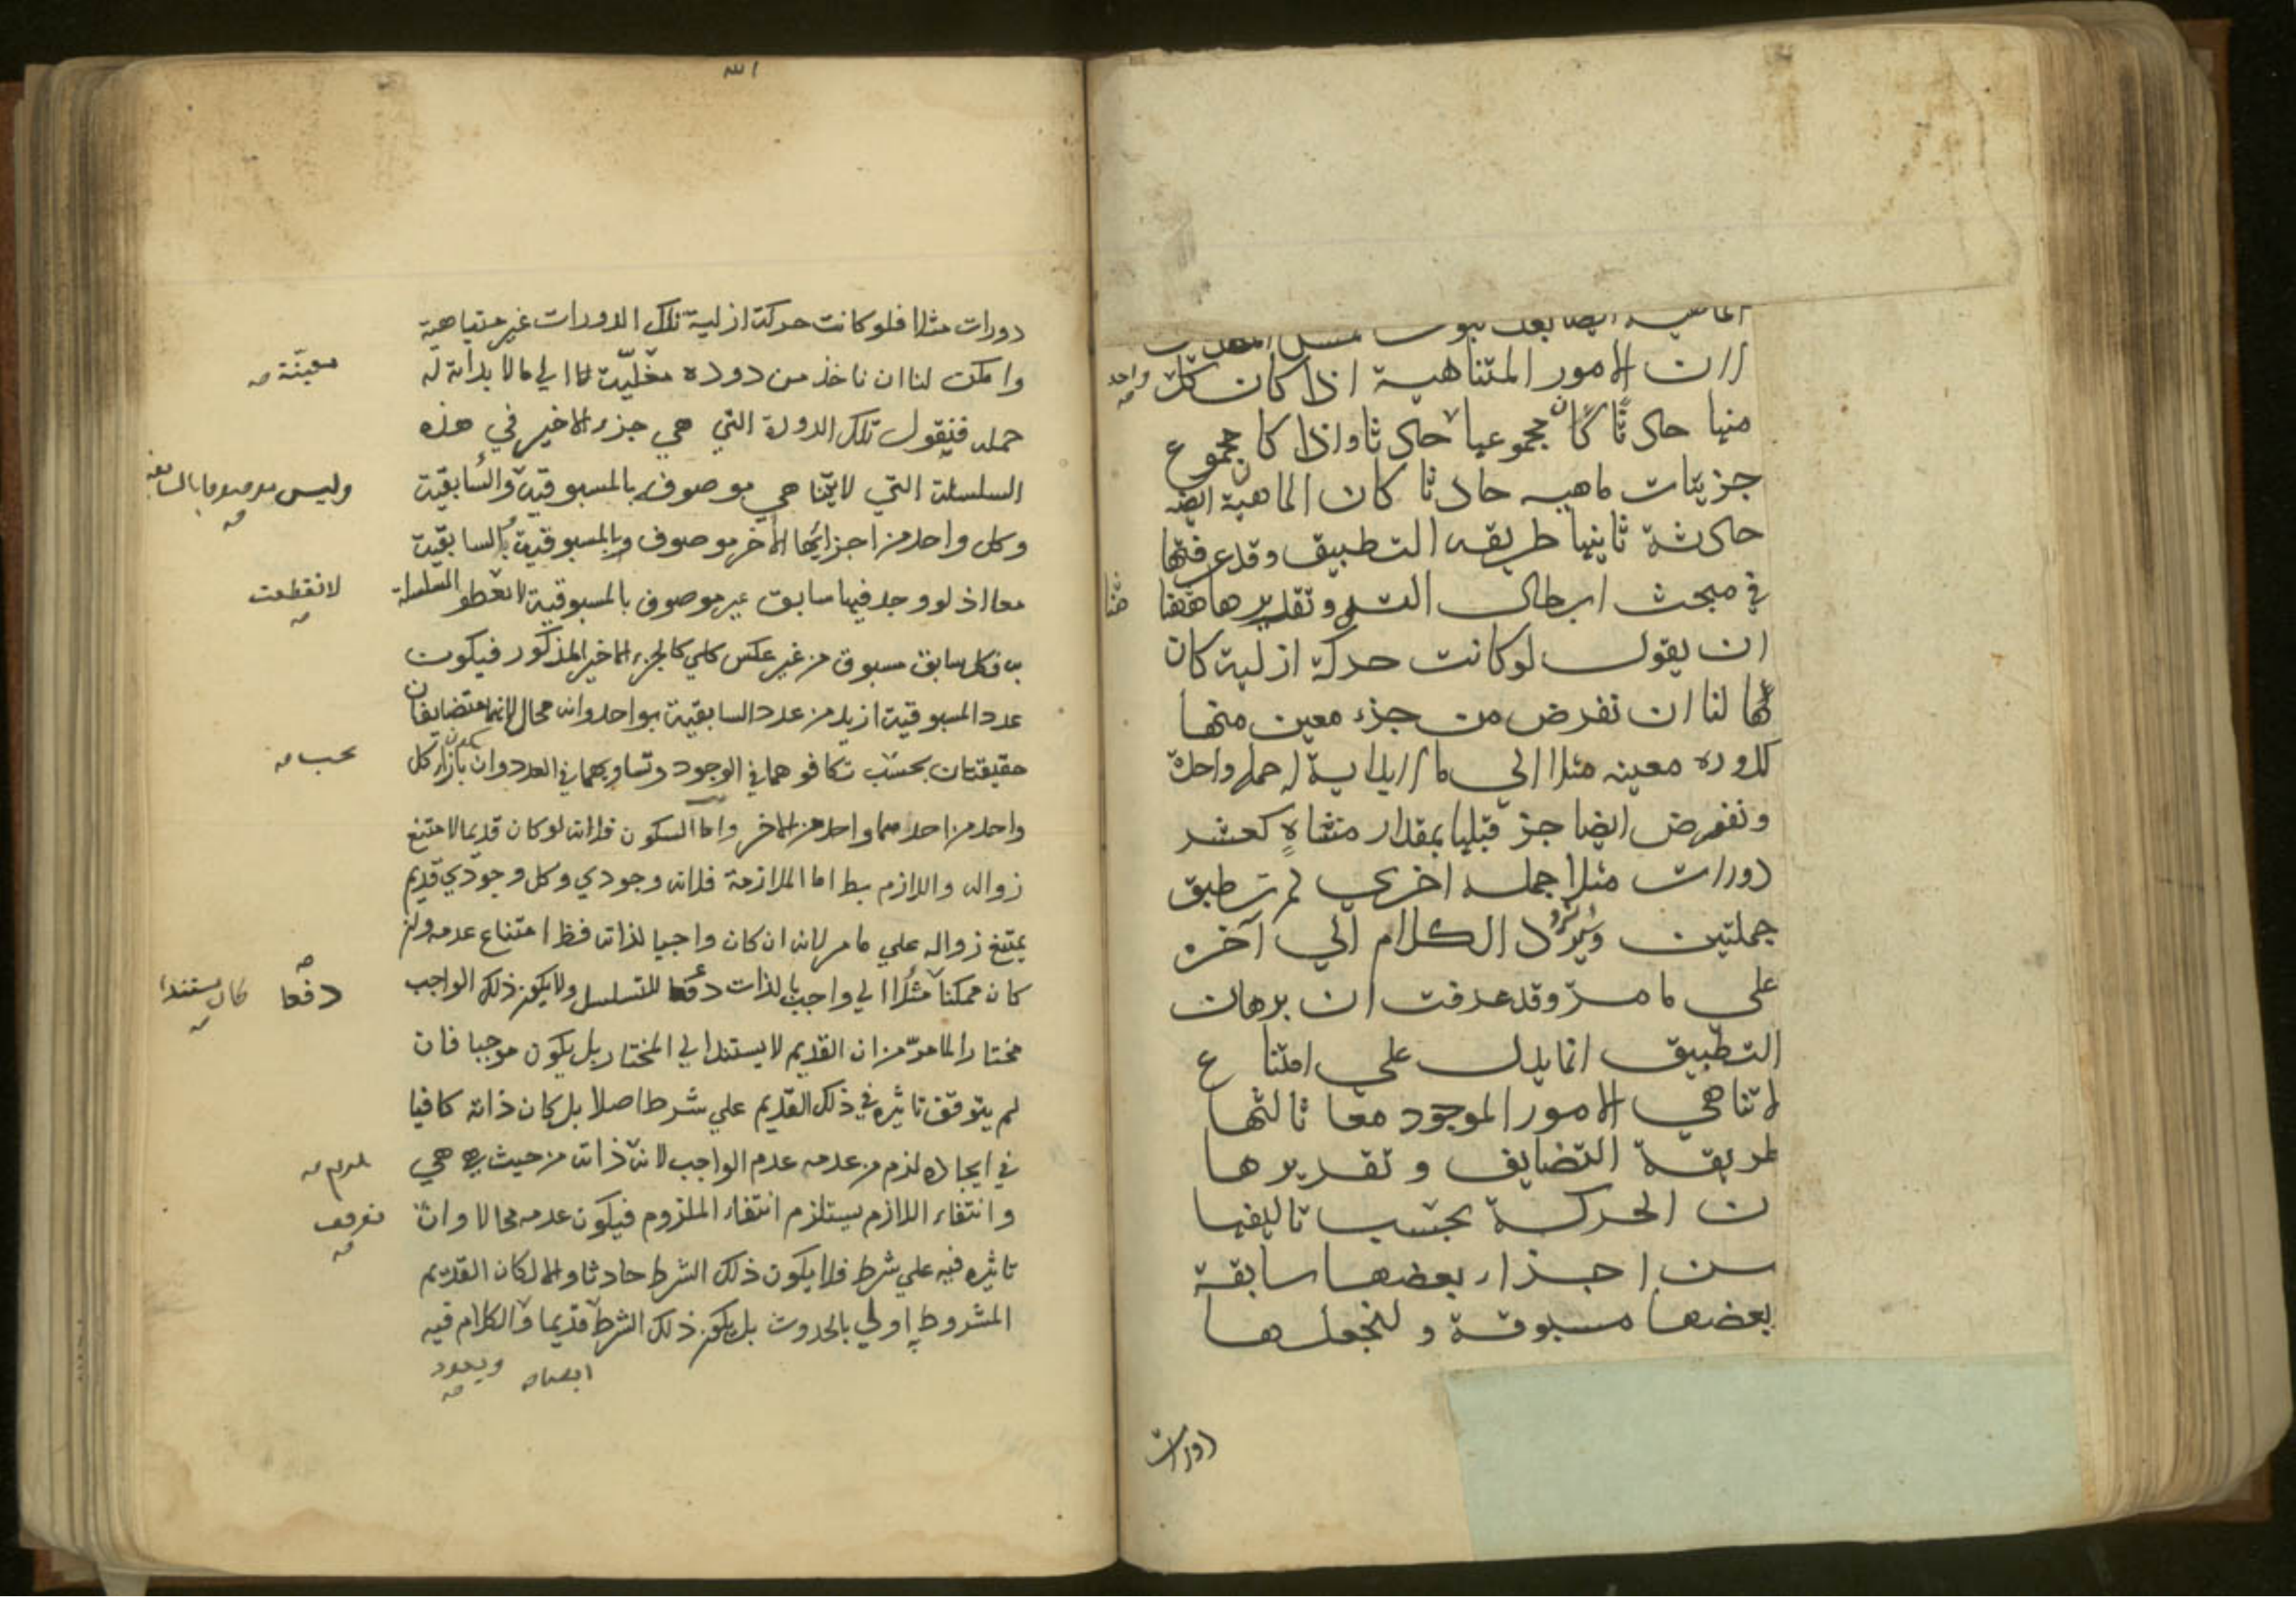 لان الامور المتناهية اذا كان كل واحد
منها حادثا كان مجموعها حادثا واذا كان مجموع
جزئيات ماهيه حادثا كان الماهية ايضه
حادثة ثانيها طريقه التطبيق وقد عرفتها
في مبحث ابطال التسـ وتقديرها ههنا
هنا
ان يقول لو كانت حركة ازلية كان
لنا ان نفرض من جزء معين منها
كدوره معينه مثلا الي ما لا بداية له جمله واحدة
ونفرض ايضا جز قبلها بمقدار متناهٍ كعشر
دورات مثلا جمله اخري ثم تطبق
جملتين ويرد الكلام الي آخره
علي ما مرّ وقد عرفت ان برهان
التطبيق انما يدل علي امتناع
لا تناهي الامور الموجود معا ثالثها
طريقة التضايف وتقديرها
ن الحركة بحسب تاليفها
من اجزاء بعضها سابقة
بعضها مسبوقة ولنجعلها
دورات
الله
دورات مثلا فلو كانت حركة ازلية تلك الدورات غير متناهية
وامكن لنا ان ناخذ من دوره الي ما لا بداية له
معيّنة صه
جمله فنقول تلك الدورة التي هي جزء الاخير في هذه
السلسلة التي هي موصوف بالمسبوقية والسابقية
وليس موصوفا بالسابقية
صه
وكل واحد من اجزائها الاخر موصوف وبالمسبوقية بالسابقية
معا اذ لو وجد فيها سابق غير موصوف بالمسبوقية السلسلة
لانقطعت
صه
فكل سابق مسبوق من غير عكس كلي كالجزء الاخير المذكور فيكون
عدد المسبوقية ازيد من عدد السابقية بواحد وانه محال لانهما متضايفان
حقيقتان بحسب تكافوهما في الوجود وتساويهما في العدد وان يكون بازاء كل
يجب صه
واحد من احدهما واحد من الاخر واما السكون فلانه لو كان قديما لامتنع
زواله واللازم بط اما الملازمة فلانه وجودي وكل وجودي قديم
يمتنع زواله علي ما مر لانه ان كان واجبا لذاته فظ امتناع عدمه وان
كان ممكنا الي واجب بالذات دفعا للتسلسل ولا يكون ذلك الواجب
دفعا
صه
كان مستندا
صه
مختارا لما مرّ من ان القديم لا يستند الي المختار بل يكون موجبا فان
لم يتوقف تاثيره في ذلك القديم علي شرط اصلا بل كان ذاته كافيا
في ايجاده لزم من عدمه عدم الواجب لان ذاته من حيث هي هي
يلزم صه
وانتفاء اللازم يستلزم انتفاء الملزوم فيكون عدمه محالا وان
توقف
صه
تاثيره فيه علي شرط فلا يكون ذلك الشرط حادثا والا لكان القديم
المشروط به اولي بالحدوث بل يكون ذلك الشرط قديما والكلام فيه
ويعود
صه
ايضا صه